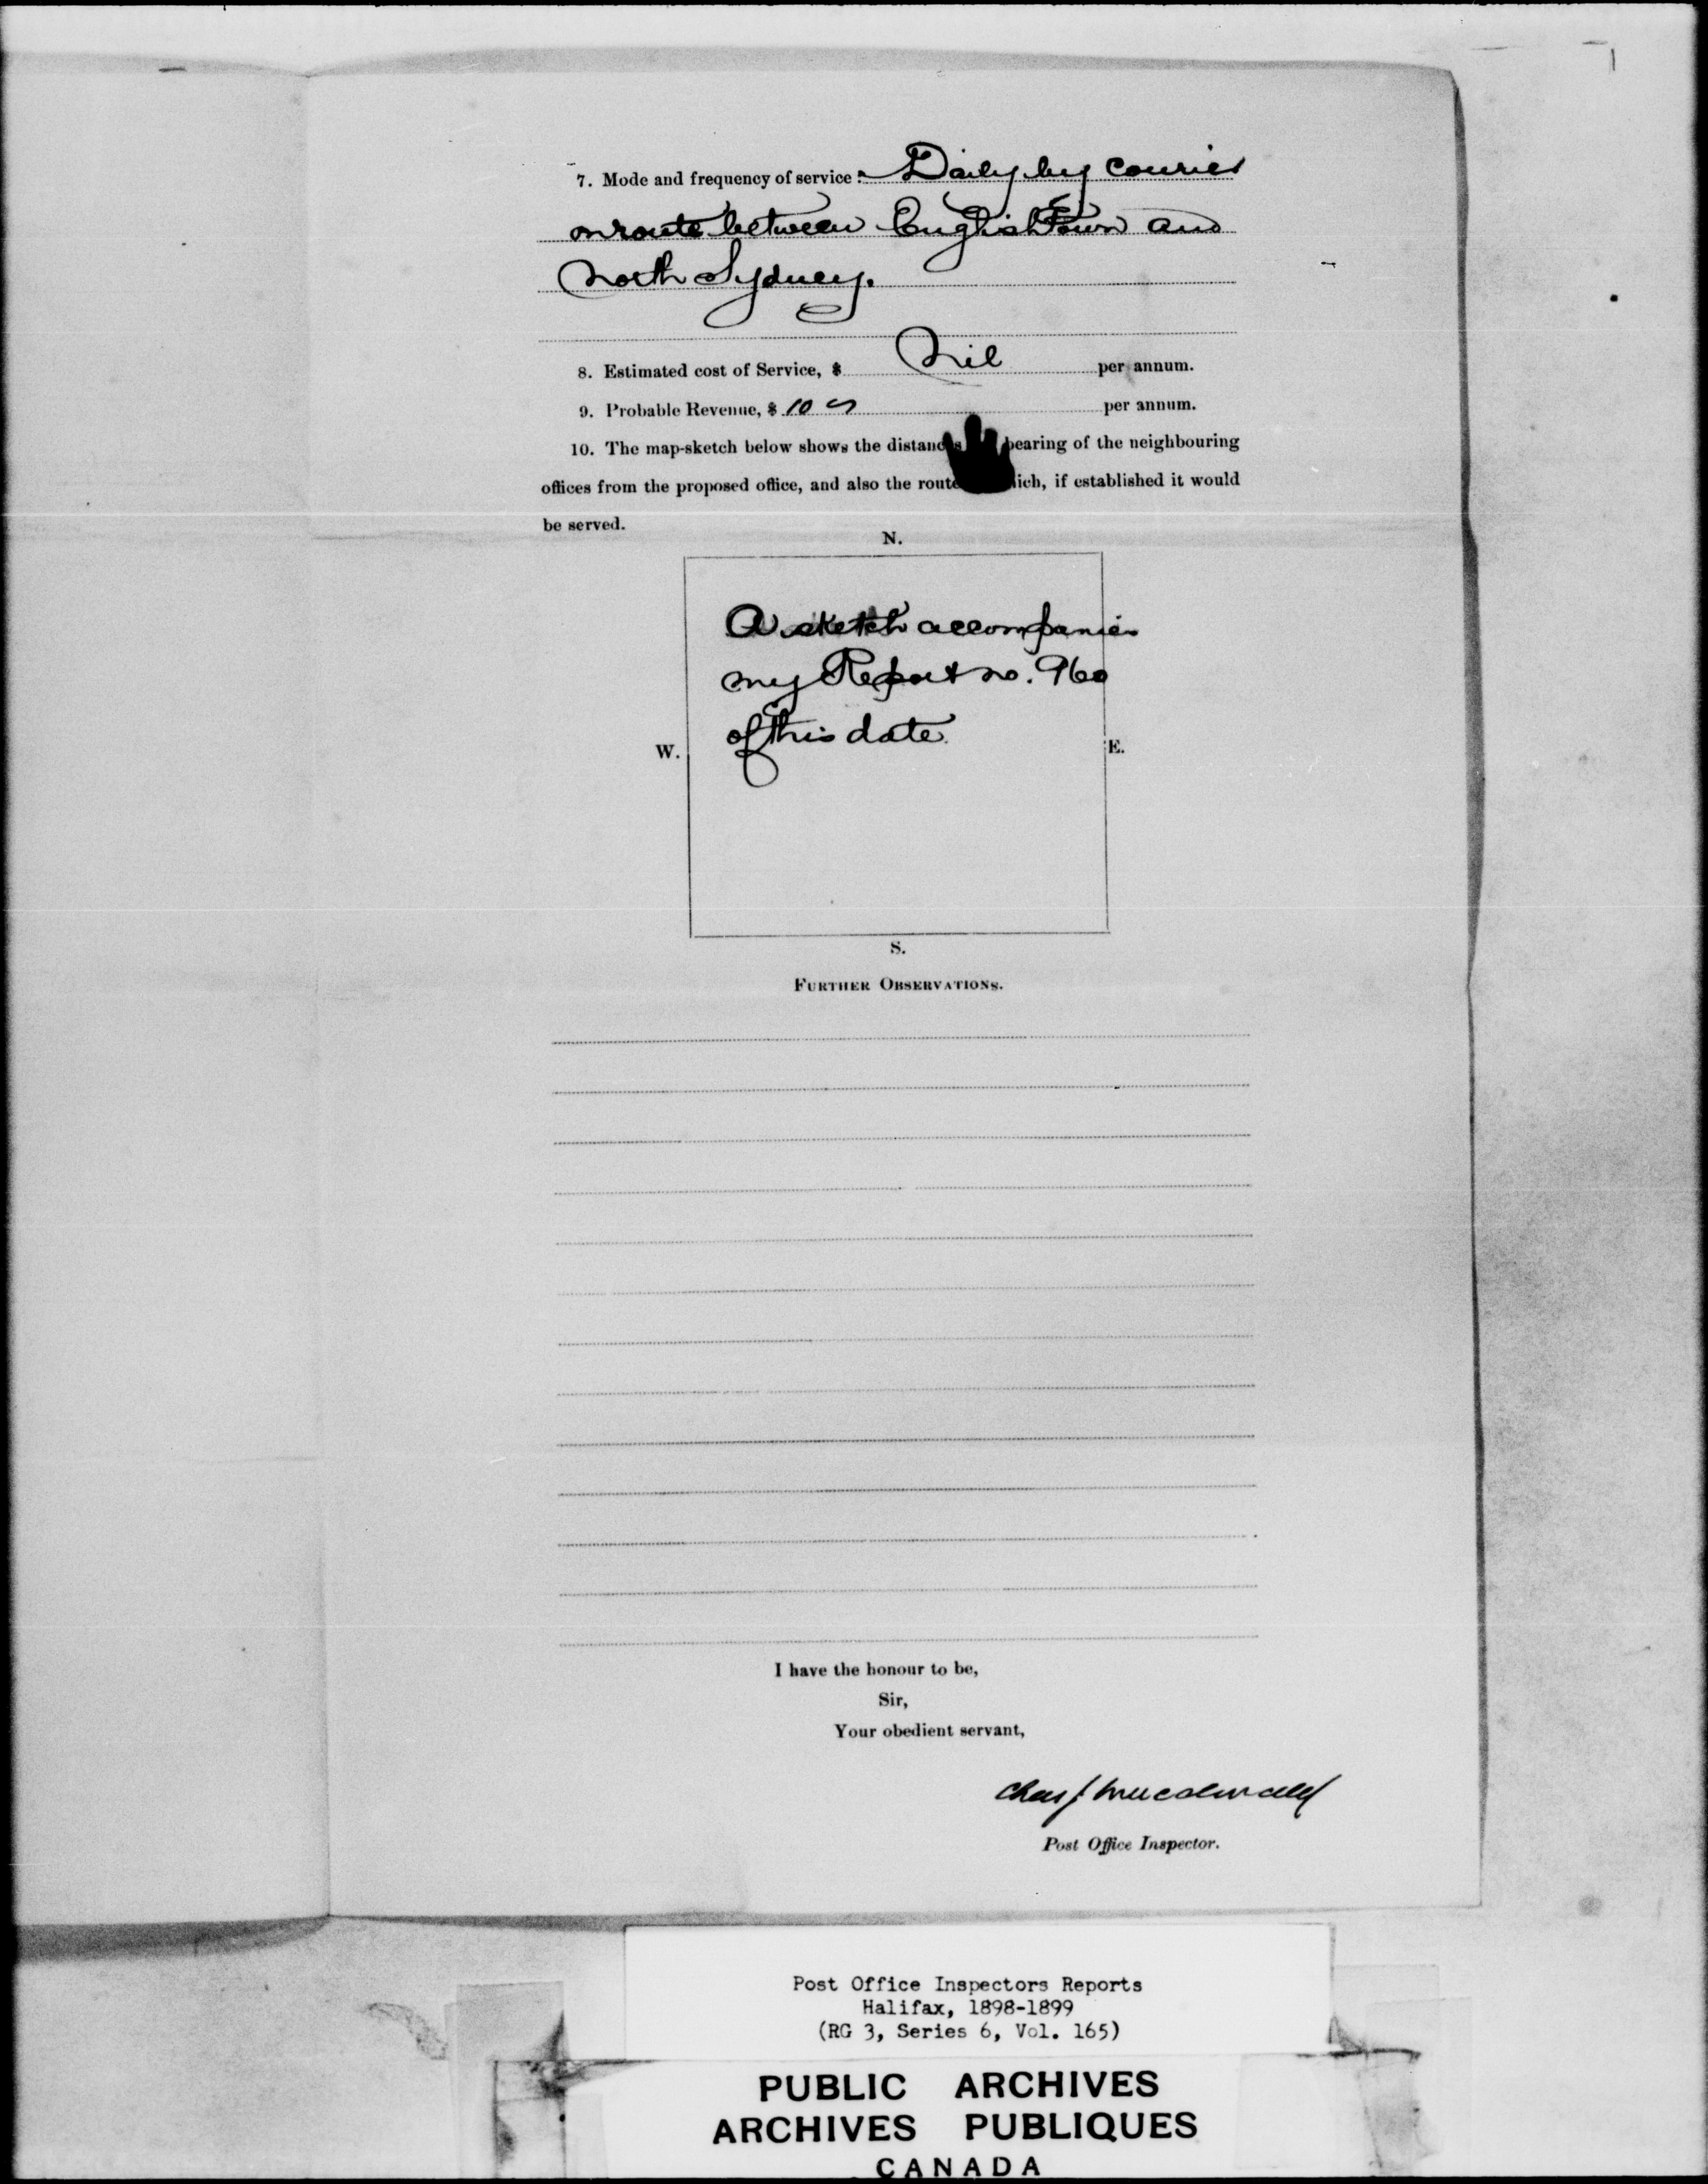 7. Mode and frequency of service: Daily by courier
on route between Englishtown and
North Sydney.
8. Estimated cost of Service, $ Nil per annum.
9. Probable Revenue, $ 10 per annum.
10. The map-sketch below shows the distances bearing of the neighbouring
offices from the proposed office, and also the route which, if established it would
be served.
N.
A sketch accompanies
my Report no. 960
of this date.
W. E.
S.
FURTHER OBSERVATIONS.
I have the honour to be,
Sir,
Your obedient servant,
Chas J Macdonald
Post Office Inspector.
Post Office Inspectors Reports
Halifax, 1898-1899
(RG 3, Series 6, Vol. 165)
PUBLIC ARCHIVES
ARCHIVES PUBLIQUES
CANADA